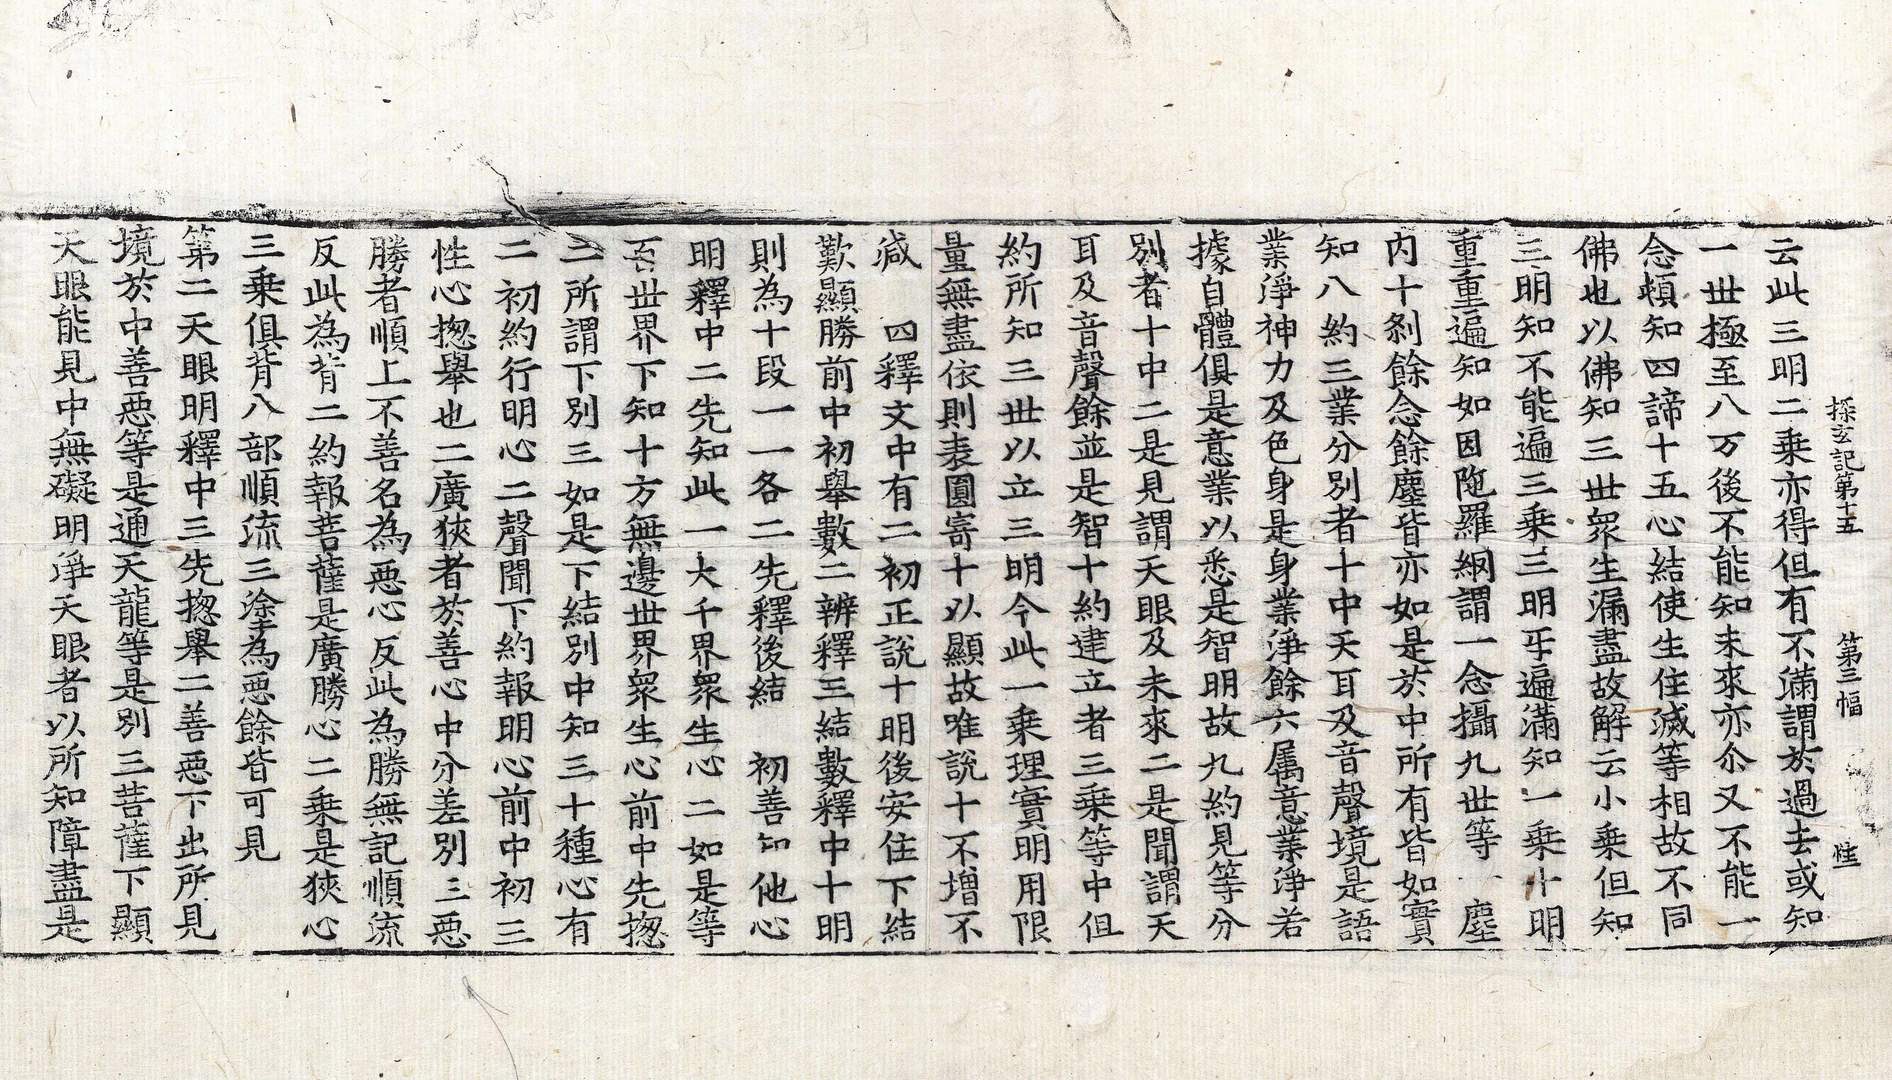 探玄記第十五　第三幅　性
云此三明二乘亦得但有不滿謂於過去或知
一世極至八万後不能知未來亦尒又不能一
念頓知四諦十五心結使生住滅等相故不同
佛也以佛知三世衆生漏盡故解云小乘但知
三明知不能遍三乘三明乎遍滿知一乘十明
重重遍知如因陁羅網謂一念攝九世等一塵
內十刹餘念餘塵皆亦如是於中所有皆如實
知八約三業分別者十中天耳及音聲境是語
業淨神力及色身是身業淨餘六属意業淨若
據自體俱是意業以悉是智明故九約見等分
別者十中二是見謂天眼及未來二是聞謂天
耳及音聲餘並是智十約建立者三乘等中但
約所知三世以立三明今此一乘理實明用限
量無盡依則表圓寄十以顯故唯說十不增不
減　四釋文中有二初正說十明後安住下結
歎顯勝前中初舉數二辨釋三結數釋中十明
則為十段一一各二先釋後結　初善知他心
明釋中二先知此一大千界衆生心二如是等
百世界下知十方無邊世界衆生心前中先揔
二所謂下別三如是下結別中知三十種心有
二初約行明心二聲聞下約報明心前中初三
性心揔舉也二廣狹者於善心中分差別三惡
勝者順上不善名為惡心反此為勝無記順流
反此為背二約報菩薩是廣勝心二乘是狹心
三乘俱背八部順流三塗為惡餘皆可見
第二天眼明釋中三先揔舉二善惡下出所見
境於中善惡等是通天龍等是別三菩薩下顯
天眼能見中無礙明淨天眼者以所知障盡是